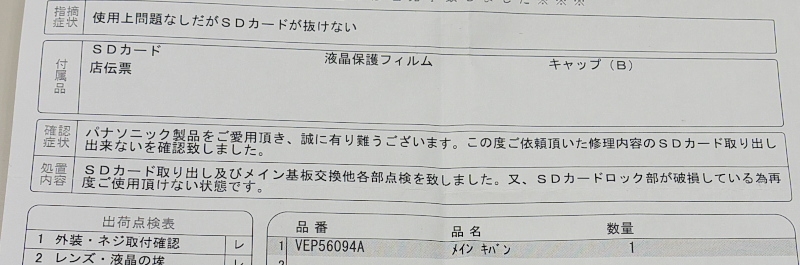 指摘症状 使用上問題なしだがSDカードが抜けない
付属品 SDカード 液晶保護フィルム キャップ(B)
店伝票
確認症状 パナソニック製品をご愛用頂き、誠に有り難うございます。この度ご依頼頂いた修理内容のSDカード取り出し
出来ないを確認致しました。
処置内容 SDカード取り出し及びメイン基板交換他各部点検を致しました。又、SDカードロック部が破損している為再
度ご使用頂けない状態です。
出荷点検表 品番 品名 数量
1 外装・ネジ取付確認 レ 1 VEP56094A メイン キバン 1
2 レンズ・液晶の埃 レ 2